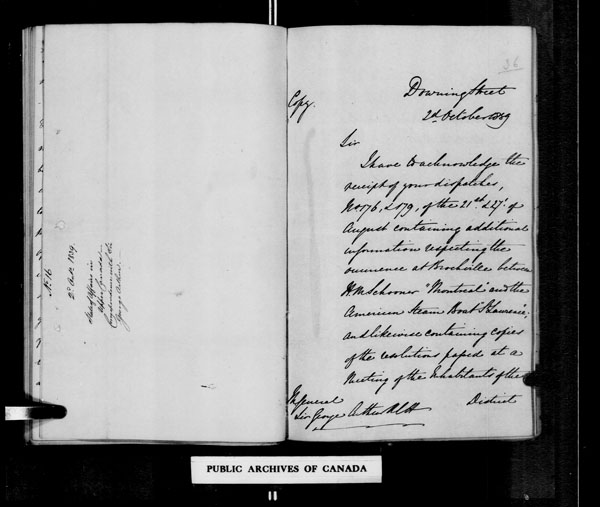 No. 16
2d Octr. 1839.
State of affairs in
Upper Canada
Sir
George Arthur
36
Copy.
Downing Street
2d. October 1839
Sir
I have to acknowledge the
receipt of your dispatches,
No. 176, & 179, of the 21st. & 27th. of
August containing additional
information respecting the
occurrence at Brockville between
H.M. Schooner "Montreal" and the
American Steam Boat "St. Lawrence";
and likewise containing copies
of the resolutions passed at a
Meeting of the Inhabitants of the
District
M. General
Sir George Arthur K.C.H.
PUBLIC ARCHIVES OF CANADA